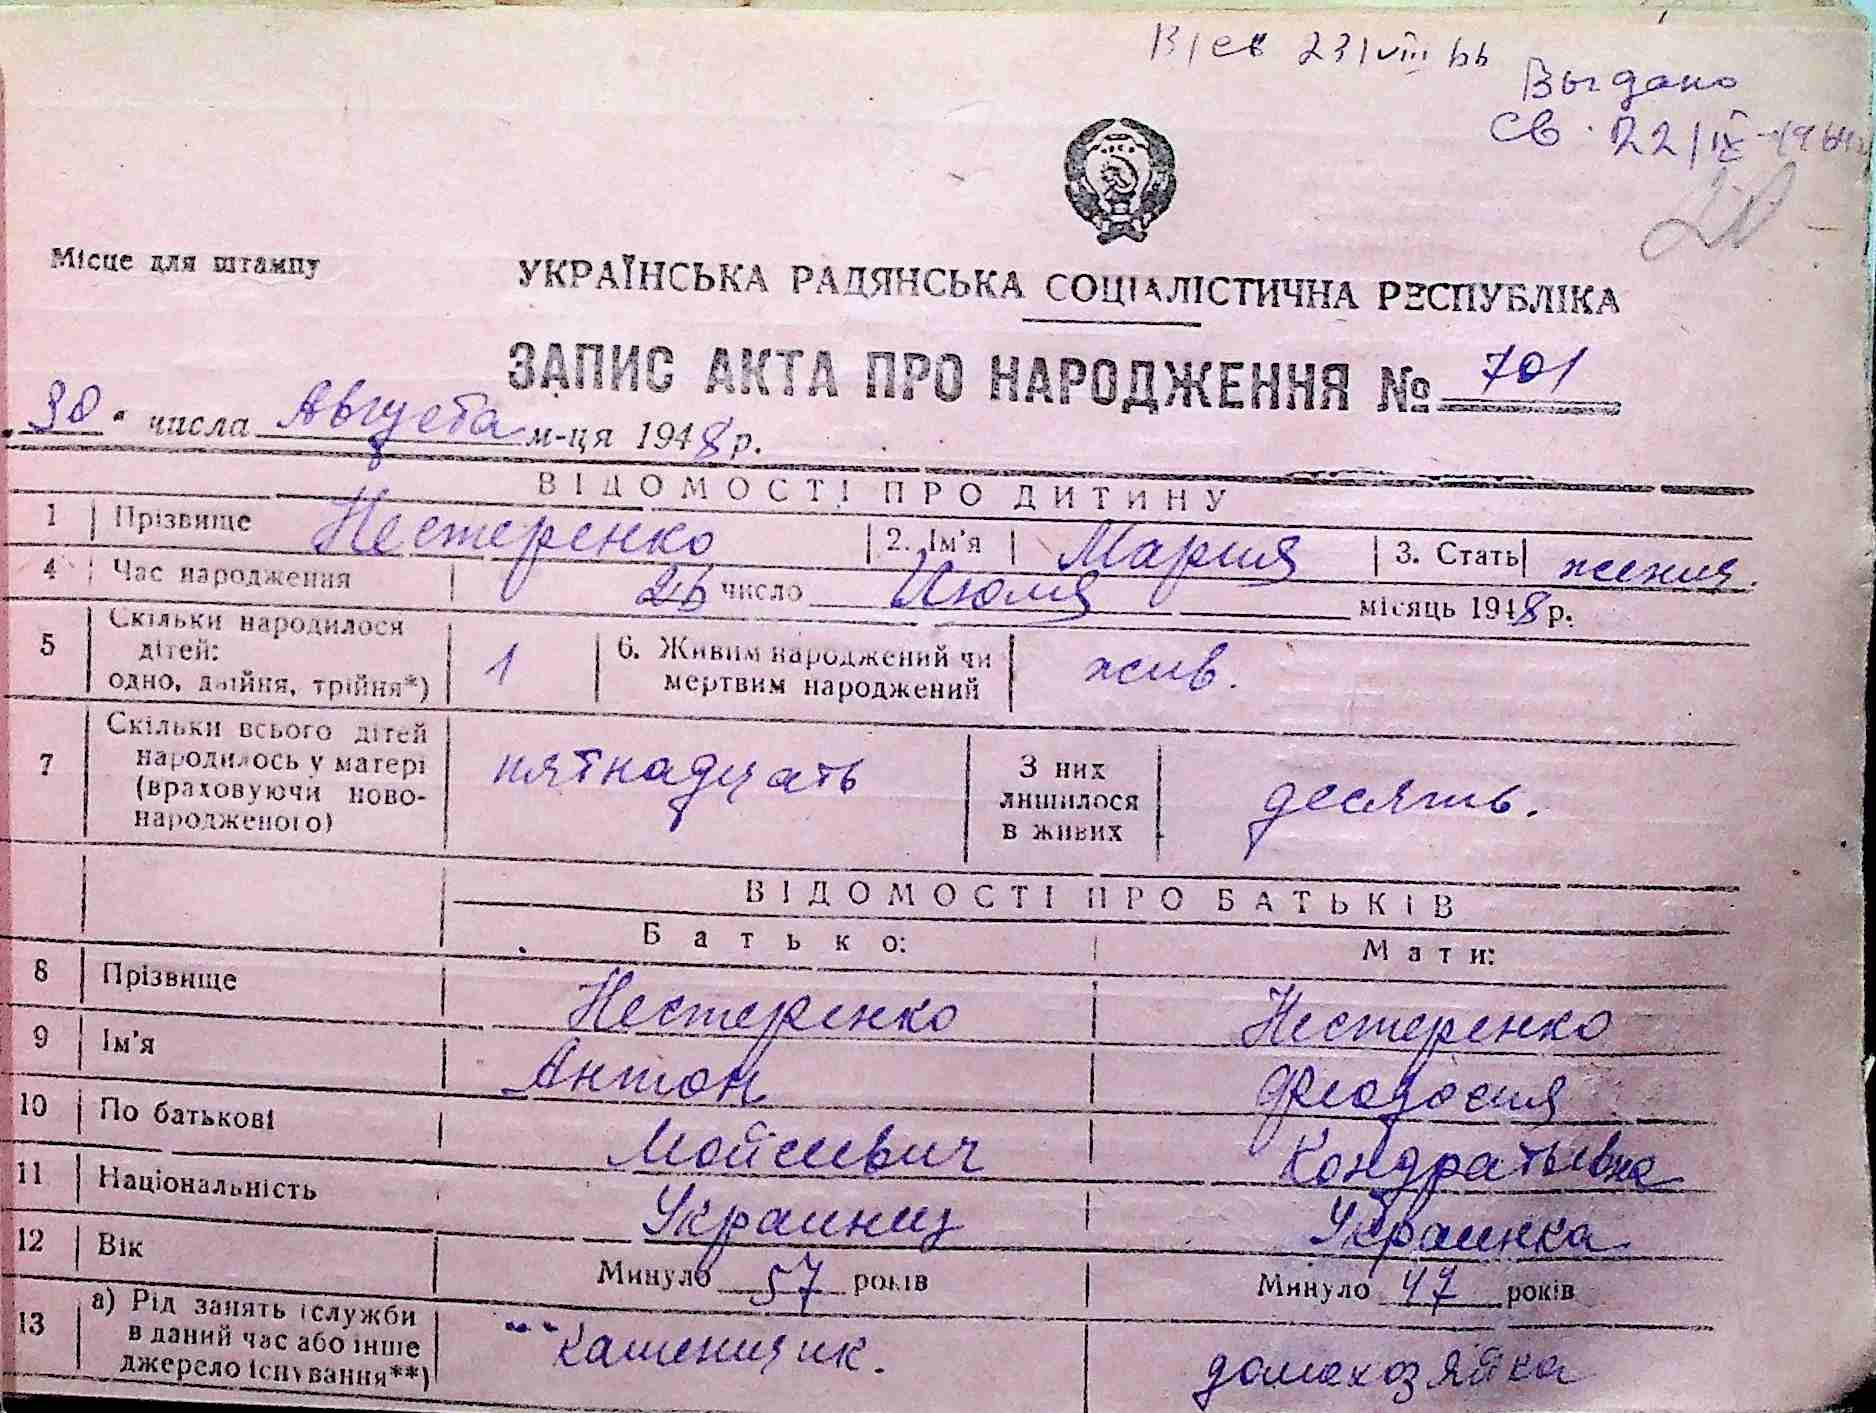 23/VIII 66
Выдано
св. 22/IX-1964
Місце для штампу
УКРАЇНСЬКА РАДЯНСЬКА СОЦІАЛІСТИЧНА РЕСПУБЛІКА
ЗАПИС АКТА ПРО НАРОДЖЕННЯ № 701
"30" числа Августа м-ця 1948 р.
ВІДОМОСТІ ПРО ДИТИНУ
1 Прізвище Нестеренко 2. Ім'я Мария 3. Стать
4 Час народження 26 число Июля місяць 1948 р.
5 Скільки народилося дітей: одно, двійня, трійня*) 1 6. Живим народжений чи мертвим народжений жив.
7 Скільки всього дітей народилось у матері (враховуючи новонародженого) пятнадцать З них лишилося в живих десять.
ВІДОМОСТІ ПРО БАТЬКІВ
Батько: Мати:
8 Прізвище Нестеренко Нестеренко
9 Ім'я Антон Феодосия
10 По батькові Мойсеевич Кондратьевна
11 Національність Украинец Украинка
12 Вік Минуло 57 років Минуло 47 років
13 а) Рід занять (служби в даний час або інше джерело існування**) Каменщик. домохозяйка